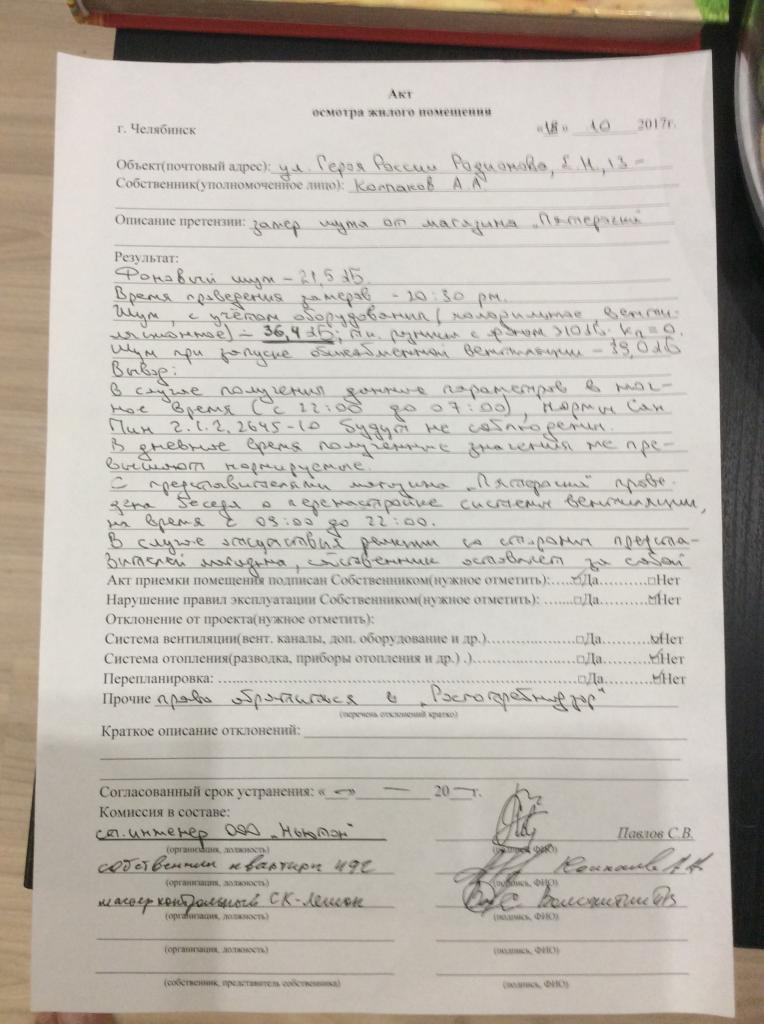 Акт
осмотра жилого помещения
г. Челябинск «18» 10 2017г.
Объект(почтовый адрес): ул. Героя России Родионова, Е.Н., 13 -
Собственник(уполномоченное лицо): Колпаков А.А
Описание претензии: замер шума от магазина „Пятерочка"
Результат:
Фоновый шум – 21,5 дБ.
Время проведения замеров - 20:30 pm.
Шум, с учётом оборудования (холодильное, венти-
ляционное) – 36,4 дБ; т.к. разница с фоном >10дБ. Кп=0.
Шум при запуске общеобменной вентиляции – 39,0 дБ
Вывод:
В случае получения данных параметров в ноч-
ное время (с 22:00 до 07:00), нормы Сан
Пин 2.1.2.2645-10 будут не соблюдены.
В дневное время полученные значения не пре-
вышают нормируемые.
С представителями магазина „Пятерочка" прове-
дена беседа о перенастройке системы вентиляции,
на время с 09:00 до 22:00.
В случае отсутствия реакции со стороны предста-
вителей магазина, собственник оставляет за собой
Акт приемки помещения подписан Собственником(нужное отметить):.....☑Да..........☐Нет
Нарушение правил эксплуатации Собственником(нужное отметить): ......☐Да..........☑Нет
Отклонение от проекта(нужное отметить):
Система вентиляции(вент. каналы, доп. оборудование и др.)....................☐Да..........☑Нет
Система отопления(разводка, приборы отопления и др.) .).......................☐Да..........☑Нет
Перепланировка: ..............................................................................☐Да..........☑Нет
Прочие право обратиться в „Роспотребнадзор"
(перечень отклонений кратко)
Краткое описание отклонений:
Согласованный срок устранения: «—» — 20—г.
Комиссия в составе:
ст. инженер ООО „Ньютон" Павлов С.В.
(организация, должность) (подпись, ФИО)
собственник квартиры 492 Колпаков А.А
(организация, должность) (подпись, ФИО)
мастер контрольный СК-Легион
(организация, должность) (подпись, ФИО)
(организация, должность) (подпись, ФИО)
(собственник, представитель собственника) (подпись, ФИО)